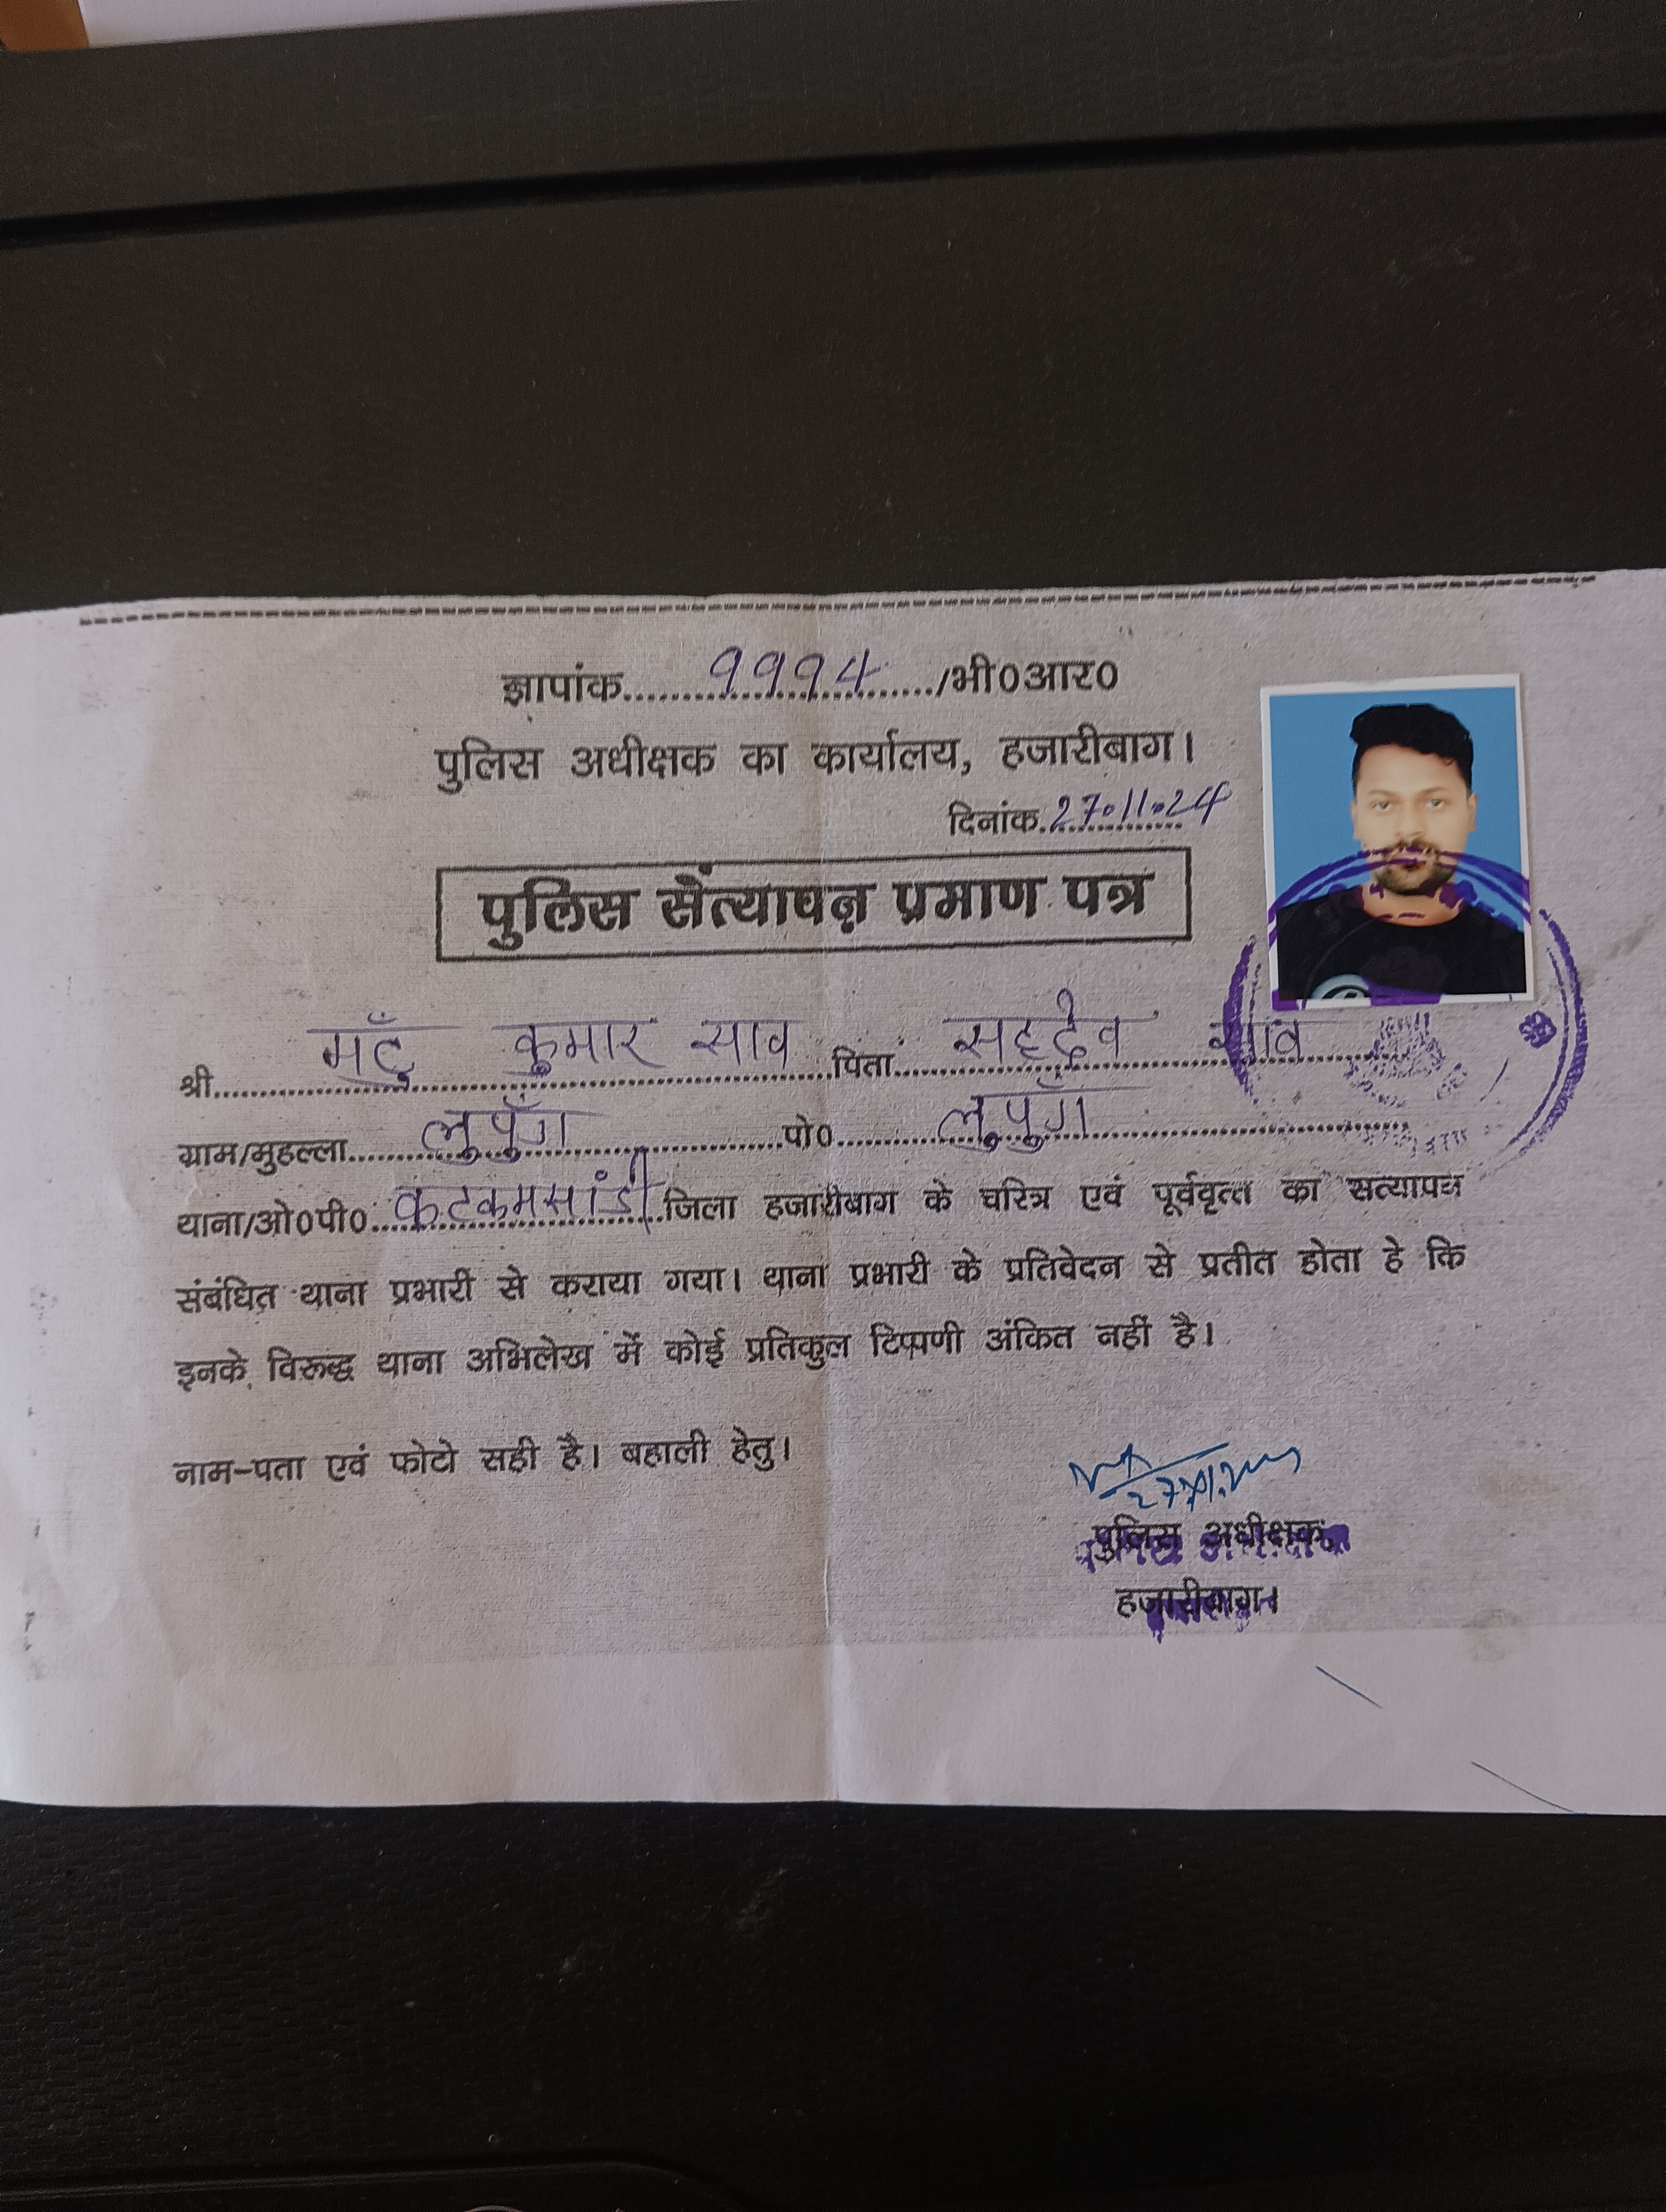 ज्ञापांक 9994 /भी0आर0
पुलिस अधीक्षक का कार्यालय, हजारीबाग।
दिनांक 27.11.24
पुलिस सत्यापन प्रमाण पत्र
श्री मटु कुमार साव पिता सहदेव साव
ग्राम/मुहल्ला लुपुँग पो0 लुपुँग
थाना/ओ0पी0 कटकमसांडी जिला हजारीबाग के चरित्र एवं पूर्ववृत्त का सत्यापन
संबंधित थाना प्रभारी से कराया गया। थाना प्रभारी के प्रतिवेदन से प्रतीत होता हे कि
इनके विरूद्ध थाना अभिलेख में कोई प्रतिकुल टिप्पणी अंकित नहीं है।
नाम-पता एवं फोटो सही है। बहाली हेतु।
पुलिस अधीक्षक,
हजारीबाग।